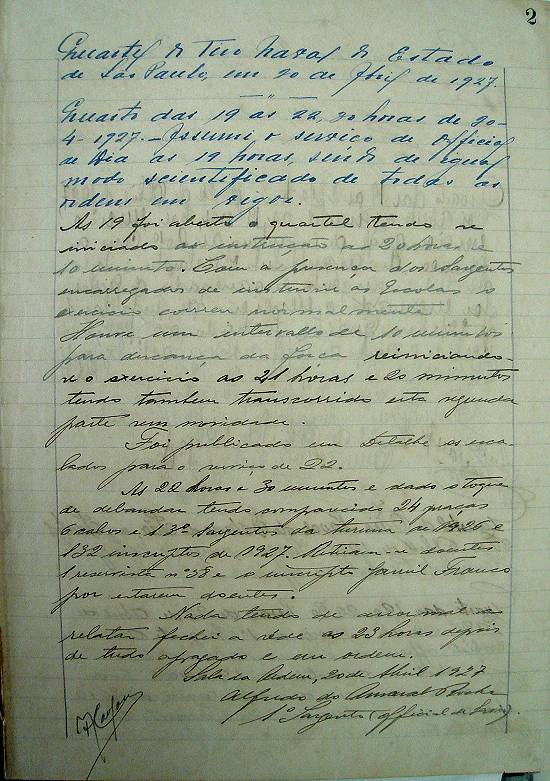 2
Quartel do Tiro Naval do Estado
de São Paulo, em 20 de Abril de 1927.
Quarto das 19 às 22,30 horas de 20-
4-1927. - Assumi o serviço de Official
de Dia as 19 horas, sendo de egual
modo scientificado de todas as
ordens em vigor.
As 19 foi aberto o quartel tendo se
iniciado as instrucções as 20 horas e
10 minutos. Com a presença dos Sargentos
encarregados de instruir as Escolas o
exercicio correu normalmente
Houve um intervallo de 10 minutos
para descança da força reiniciando-
se o exercicio as 21 horas e 20 minutos
tendo tambem transcorrido esta segunda
parte sem novidade.
Foi publicado em Detalhe os esca-
lados para o serviço de 22.
As 22 horas e 30 minutos e dado o toque
de debandar tendo comparecido 24 praças
6 cabos e 13 Sargentos da turma de 1926 e
132 inscriptos de 1927. doentes
1 reservista nº 38 e o inscripto Jamil Franco
por estarem doentes.
Nada tendo de anormal a
relatar fechei a séde as 23 horas depois
de tudo apagado e em ordem.
Sala da Ordem, 20 de Abril 1927
Alfredo do Amaral
1º Sargento (official de Serviço).